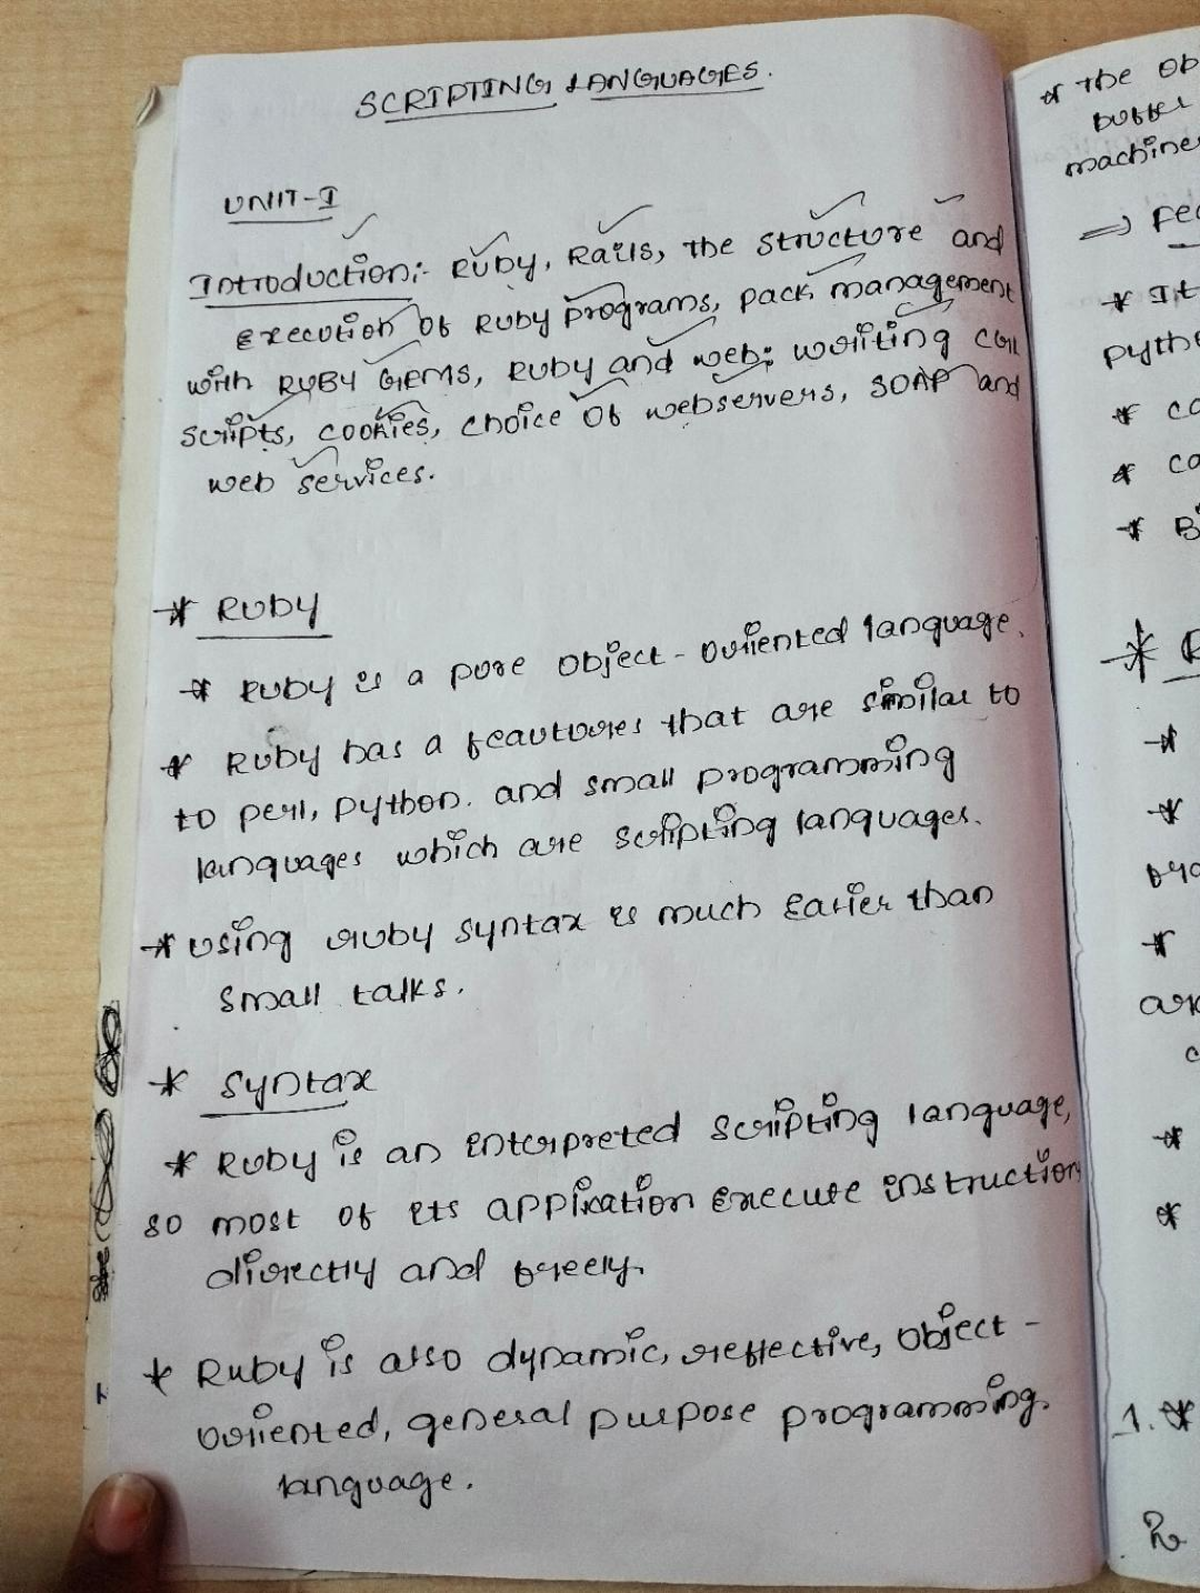 SCRIPTING LANGUAGES.
UNIT-I
Introduction:- Ruby, Rails, The structure and
execution of Ruby programs, pack management
with RUBY GEMS, Ruby and web: writing CGI
scripts, cookies, choice of webservers, SOAP and
web services.
* Ruby
* Ruby is a pure object-oriented language.
* Ruby has a feautures that are similar to
to perl, python. and small programming
languages which are scripting languages.
* using ruby syntax is much Easier than
small talks.
* syntax
* Ruby is an interpreted scripting language,
so most of its application execute instruction
directly and freely.
* Ruby is also dynamic, reflective, object-
oriented, general purpose programming.
language.
* The ob
buffer
machine
=> Fea
* It
pytho
* co
* co
* B
*
*
*
*
*
*
1. *
2